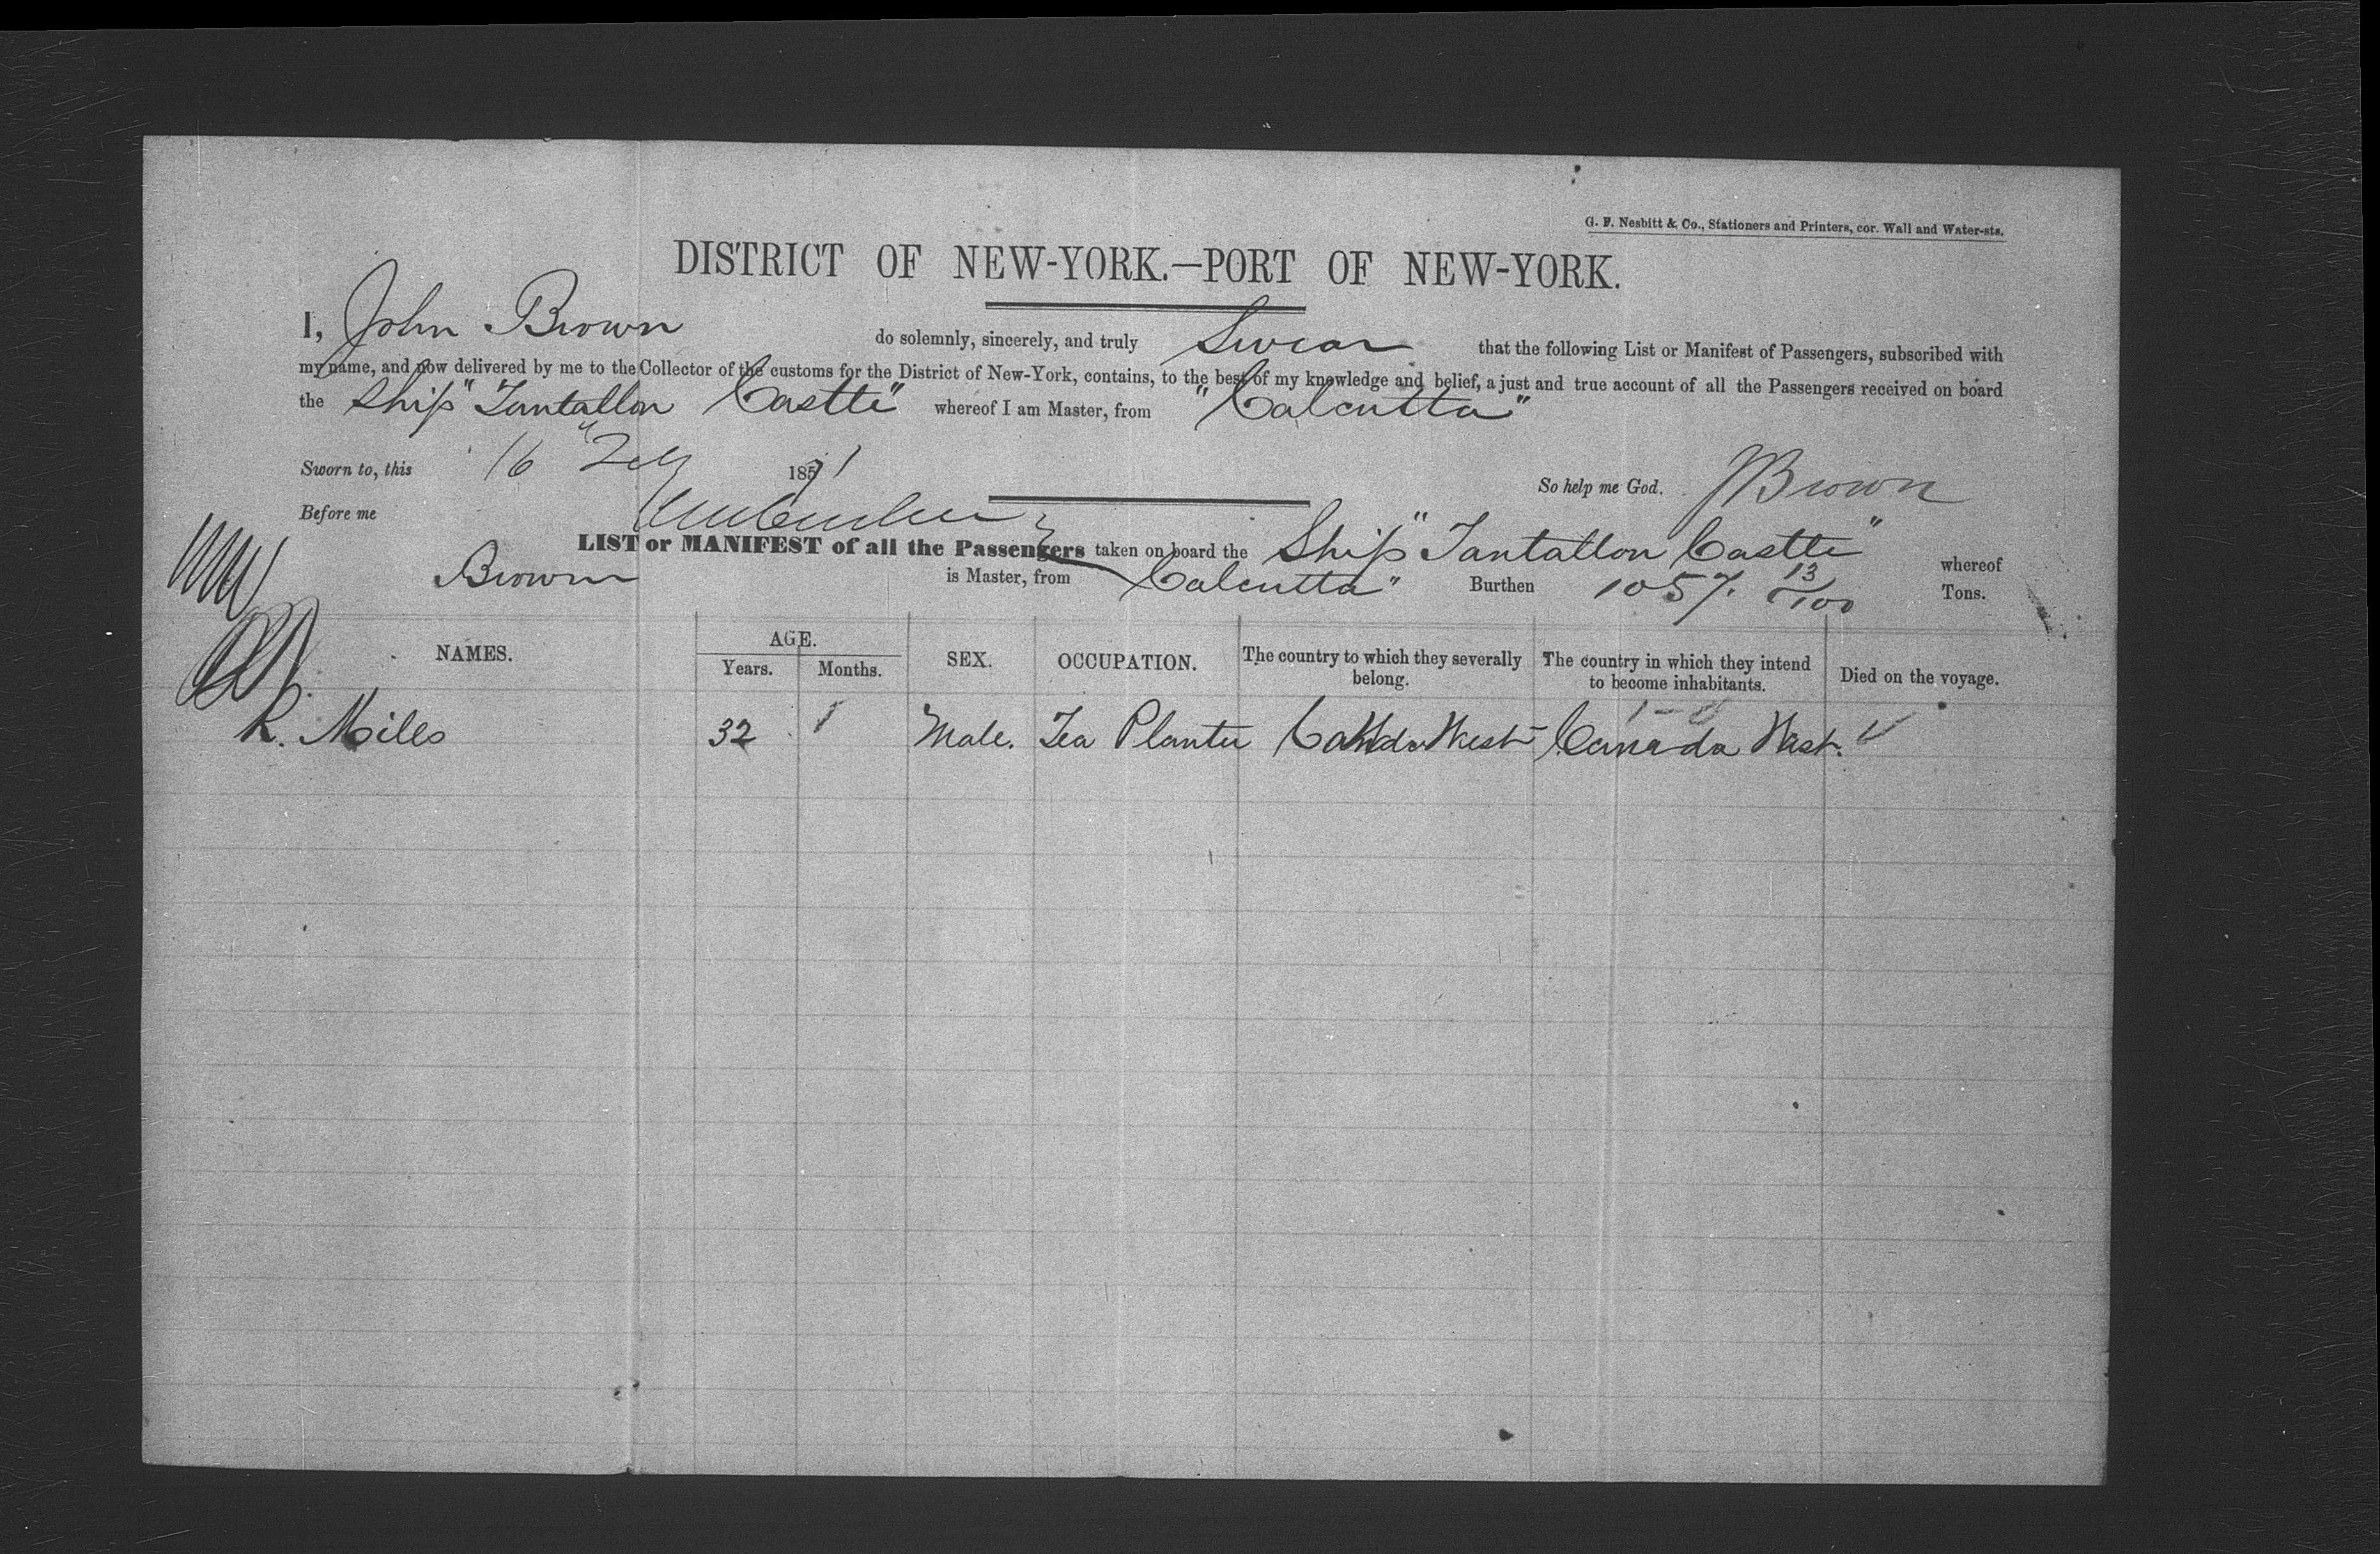 G. F. Nesbitt & Co., Stationers and Printers, cor. Wall and Water-sts.
DISTRICT OF NEW-YORK.—PORT OF NEW-YORK.
I, John Brown do solemnly, sincerely, and truly Swear that the following List or Manifest of Passengers, subscribed with
my name, and now delivered by me to the Collector of the customs for the District of New-York, contains, to the best of my knowledge and belief, a just and true account of all the Passengers received on board
the Ship "Tantallon Castle" whereof I am Master, from "Calcutta"
Sworn to, this 16 Feby 1871 So help me God. JBrown
Before me
LIST or MANIFEST of all the Passengers taken on board the Ship "Tantallon Castle" whereof
Brown is Master, from Calcutta" Burthen 1057. 13/100 Tons.
NAMES. AGE. Years. Months. SEX. OCCUPATION. The country to which they severally belong. The country in which they intend to become inhabitants. Died on the voyage.
R. Miles 32 Male. Tea Planter Canada West Canada West.